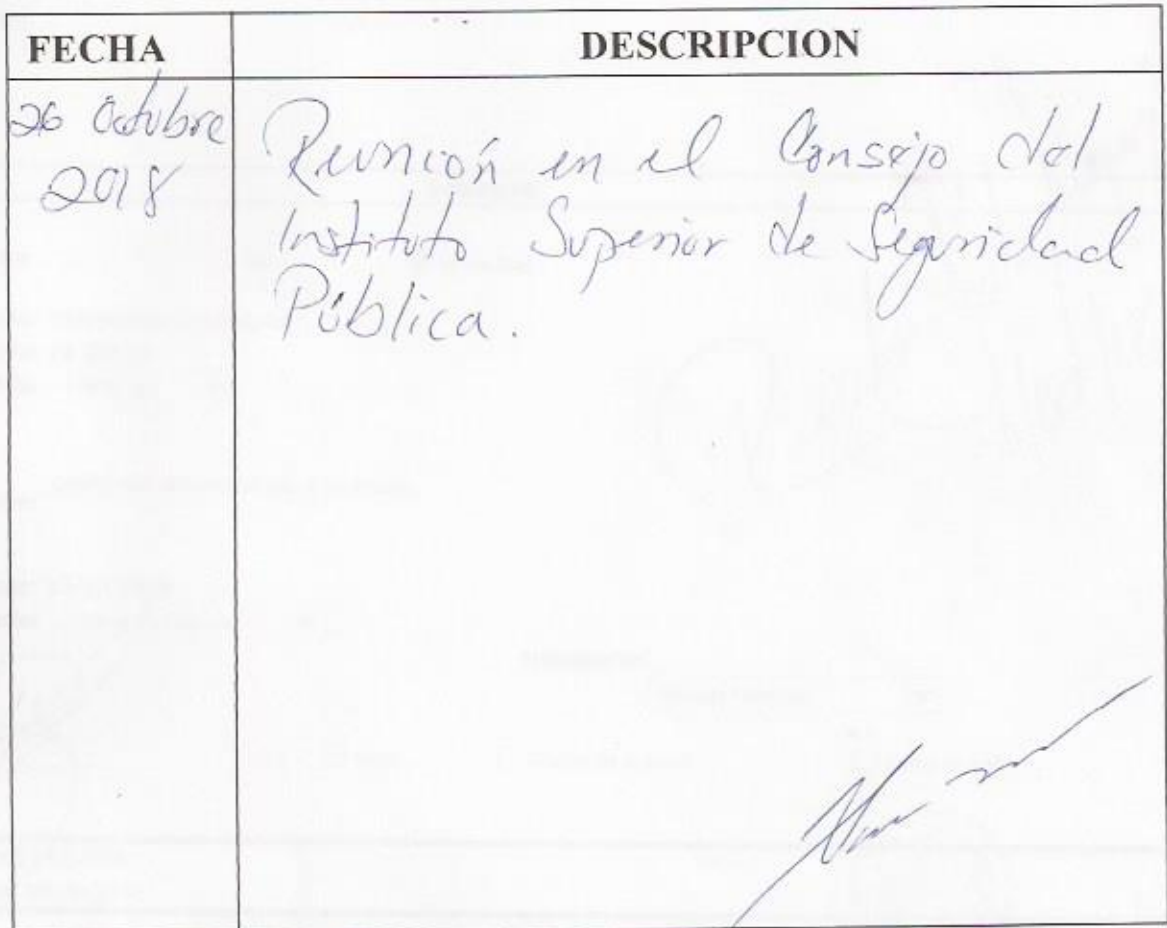 FECHA DESCRIPCION
26 Octubre
2018
Reunión en el Consejo del
Instituto Superior de Seguridad
Pública.